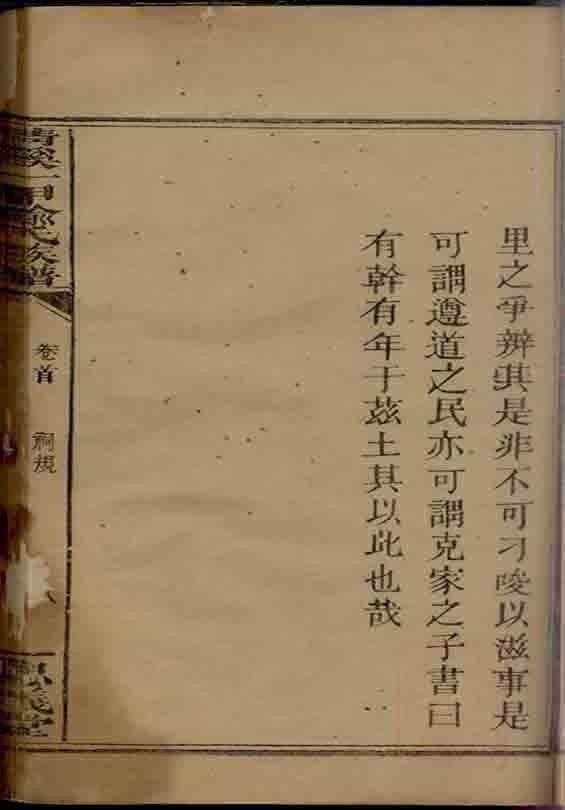 里之爭辨其是非不可刁唆以滋事是
可謂遵道之民亦可謂克家之子書曰
有幹有年于茲土其以此也哉
卷首
祠規